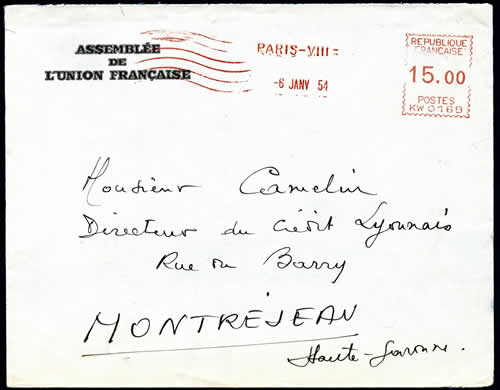 ASSEMBLÉE
DE
L'UNION FRANÇAISE
PARIS-VIII E
-6 JANV 54
REPUBLIQUE
FRANÇAISE
15.00
POSTES
KW 0169
Monsieur Camelin
Directeur du Crédit Lyonnais
Rue du Barry
MONTRÉJEAU
Haute-Garonne.